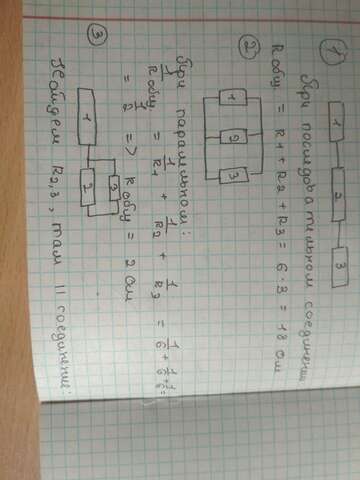 ① 1 2 3
При последовательном соединении
R общ = R1 + R2 + R3 = 6 · 3 = 18 Ом
② 1 2 3
При паралельном:
1/R общ = 1/R1 + 1/R2 + 1/R3 = 1/6 + 1/6 + 1/6 =
= 1/2 => R общ = 2 Ом
③ 1 2 3
Найдем R2,3, там || соединение: